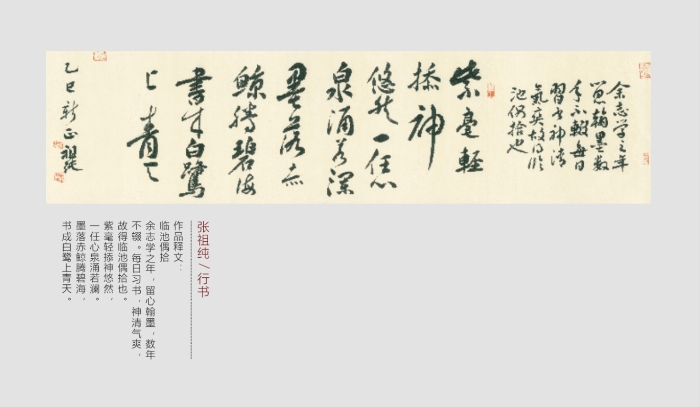 余志学之年
留心翰墨数
年不輟每日
習书神清
氣爽故得临
池偶拾也
紫毫輕
掭神
悠然一任心
泉涌若澜
墨落赤
鲸腾碧海
書成白鷺
上青天
乙巳新正祖纯
张祖纯 / 行书
作品释文：
临池偶拾
余志学之年，留心翰墨，数年
不辍。每日习书，神清气爽，
故得临池偶拾也。
紫毫轻掭神悠然，
一任心泉涌若澜。
墨落赤鲸腾碧海，
书成白鹭上青天。